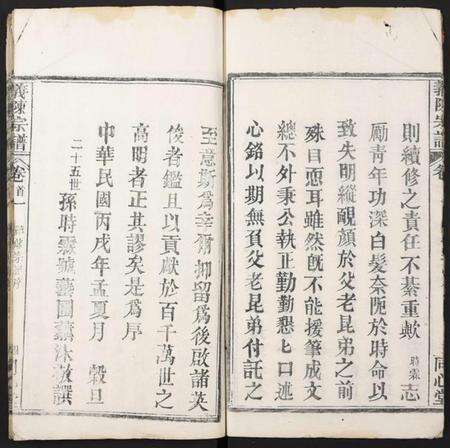 義陳宗譜
卷
同心堂
則續修之責任不綦重歟時霖志
勵青年功深白髮奈阨於時命以
致失明緬覥顔於父老昆弟之前
殊目恧耳雖然旣不能援筆成文
總不外秉公執正勤勤懇匕口述
心銘以期無負父老昆弟付託之
至意斯爲幸爾抑留爲後啟諸英
俊者鑑且以貢獻於百千萬世之
高明者正其謬矣是爲序
中華民國丙戌年孟夏月 穀旦
二十五世孫時霖號藝圃薰沐敬譔
義陳宗譜
卷首一